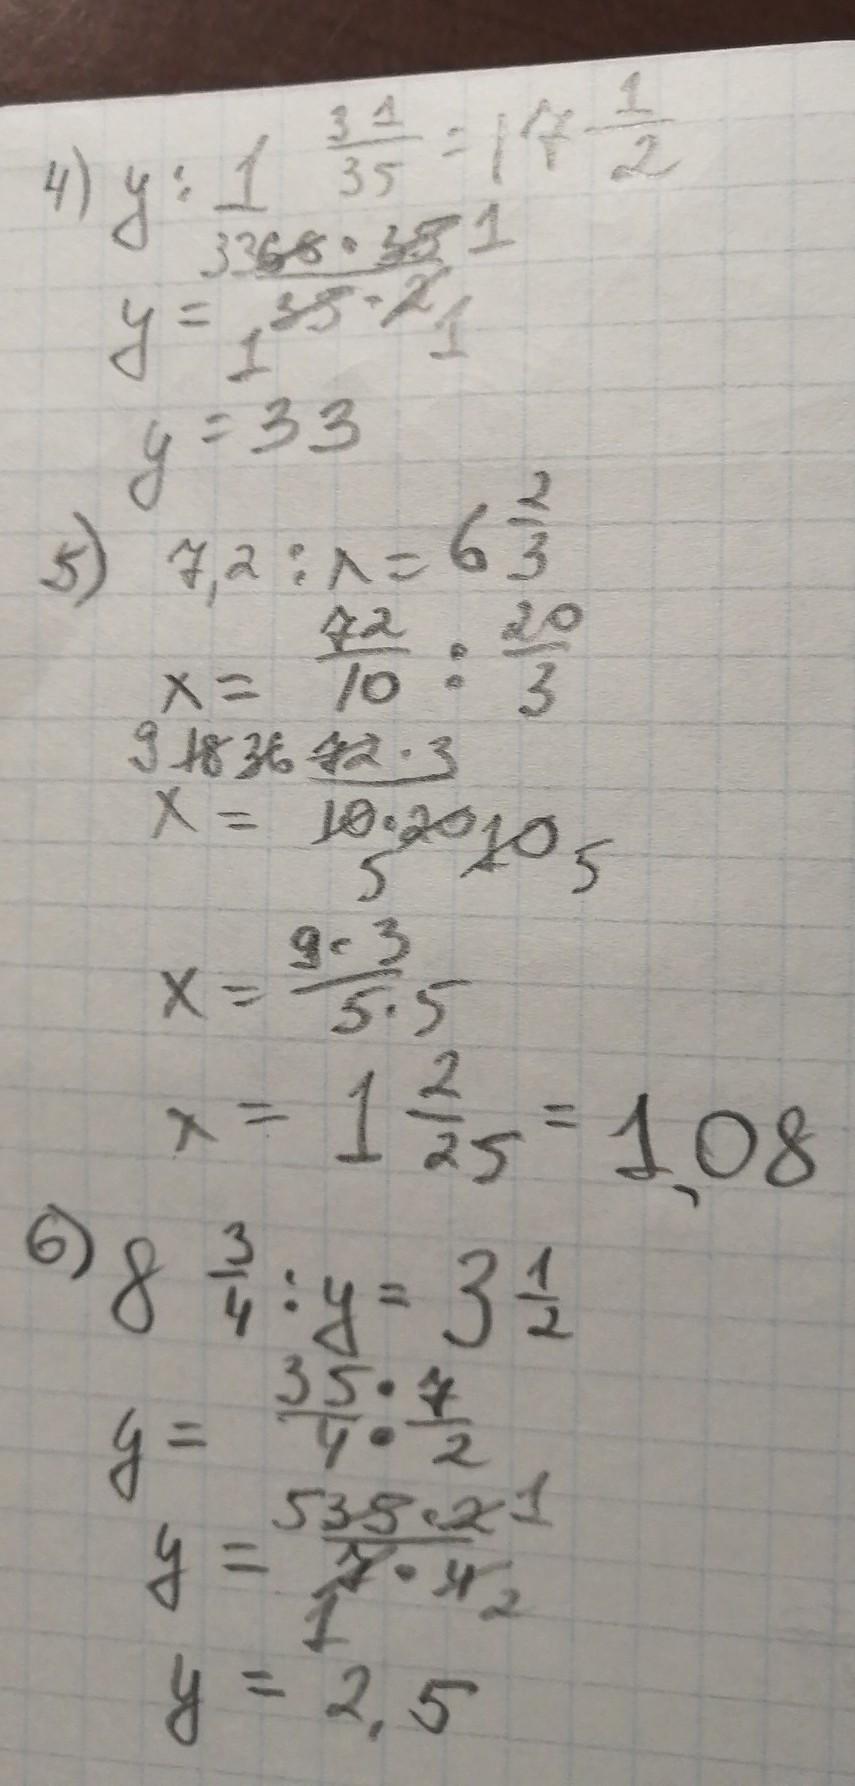 4) y : 1 31/35 = 17 1/2
y = 33 68 · 35 1 / 1 35 · 2 1
y = 33
5) 7,2 : x = 6 2/3
x = 72/10 : 20/3
x = 9 18 36 72 · 3 / 10 · 20 10 5 5
x = 9 · 3 / 5 · 5
x = 1 2/25 = 1,08
6) 8 3/4 : y = 3 1/2
y = 35/4 : 7/2
y = 5 35 · 2 1 / 7 · 4 2 1
y = 2,5